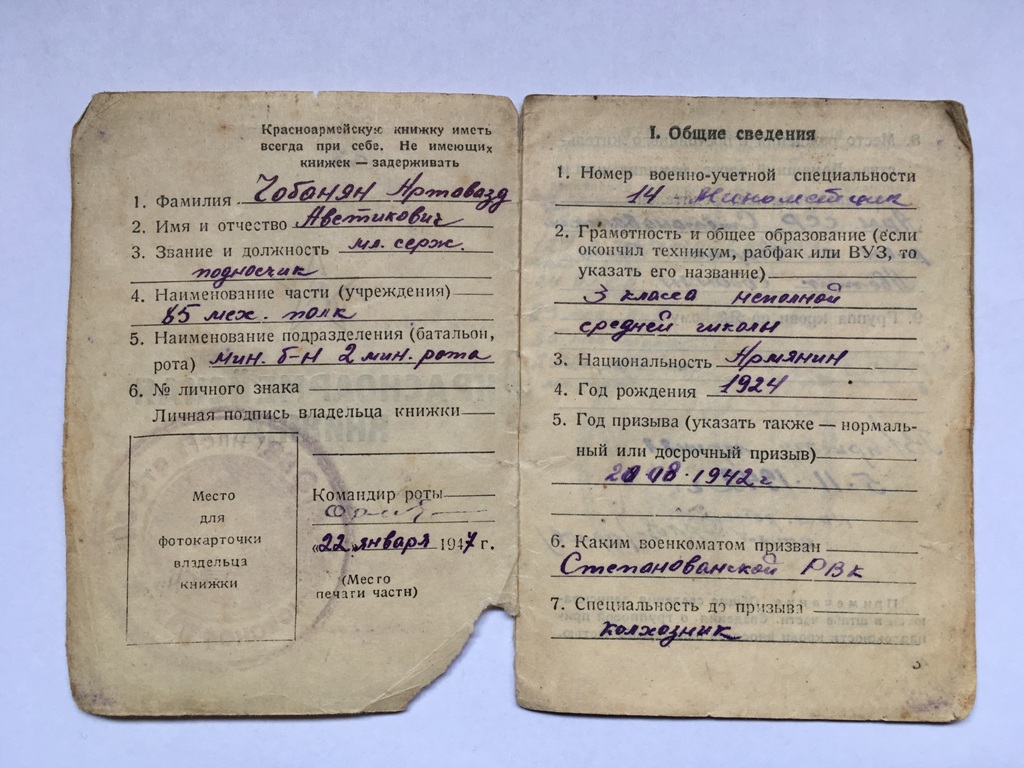 Красноармейскую книжку иметь
всегда при себе. Не имеющих
книжек — задерживать
1. Фамилия Чобанян Артавазд
2. Имя и отчество Аветикович
3. Звание и должность мл. серж.
подносчик
4. Наименование части (учреждения)
65 мех. полк
5. Наименование подразделения (батальон,
рота) мин. б-н 2 мин. рота
6. № личного знака
Личная подпись владельца книжки
Место
для
фотокарточки
владельца
книжки
Командир роты
«22» января 1947 г.
(Место
печати части)
I. Общие сведения
1. Номер военно-учетной специальности
14 Минометщик
2. Грамотность и общее образование (если
окончил техникум, рабфак или ВУЗ, то
указать его название)
3 класса неполной
средней школы
3. Национальность Армянин
4. Год рождения 1924
5. Год призыва (указать также — нормаль-
ный или досрочный призыв)
20 08 · 1942 г
6. Каким военкоматом призван
Степанованской РВК
7. Специальность до призыва
колхозник
3